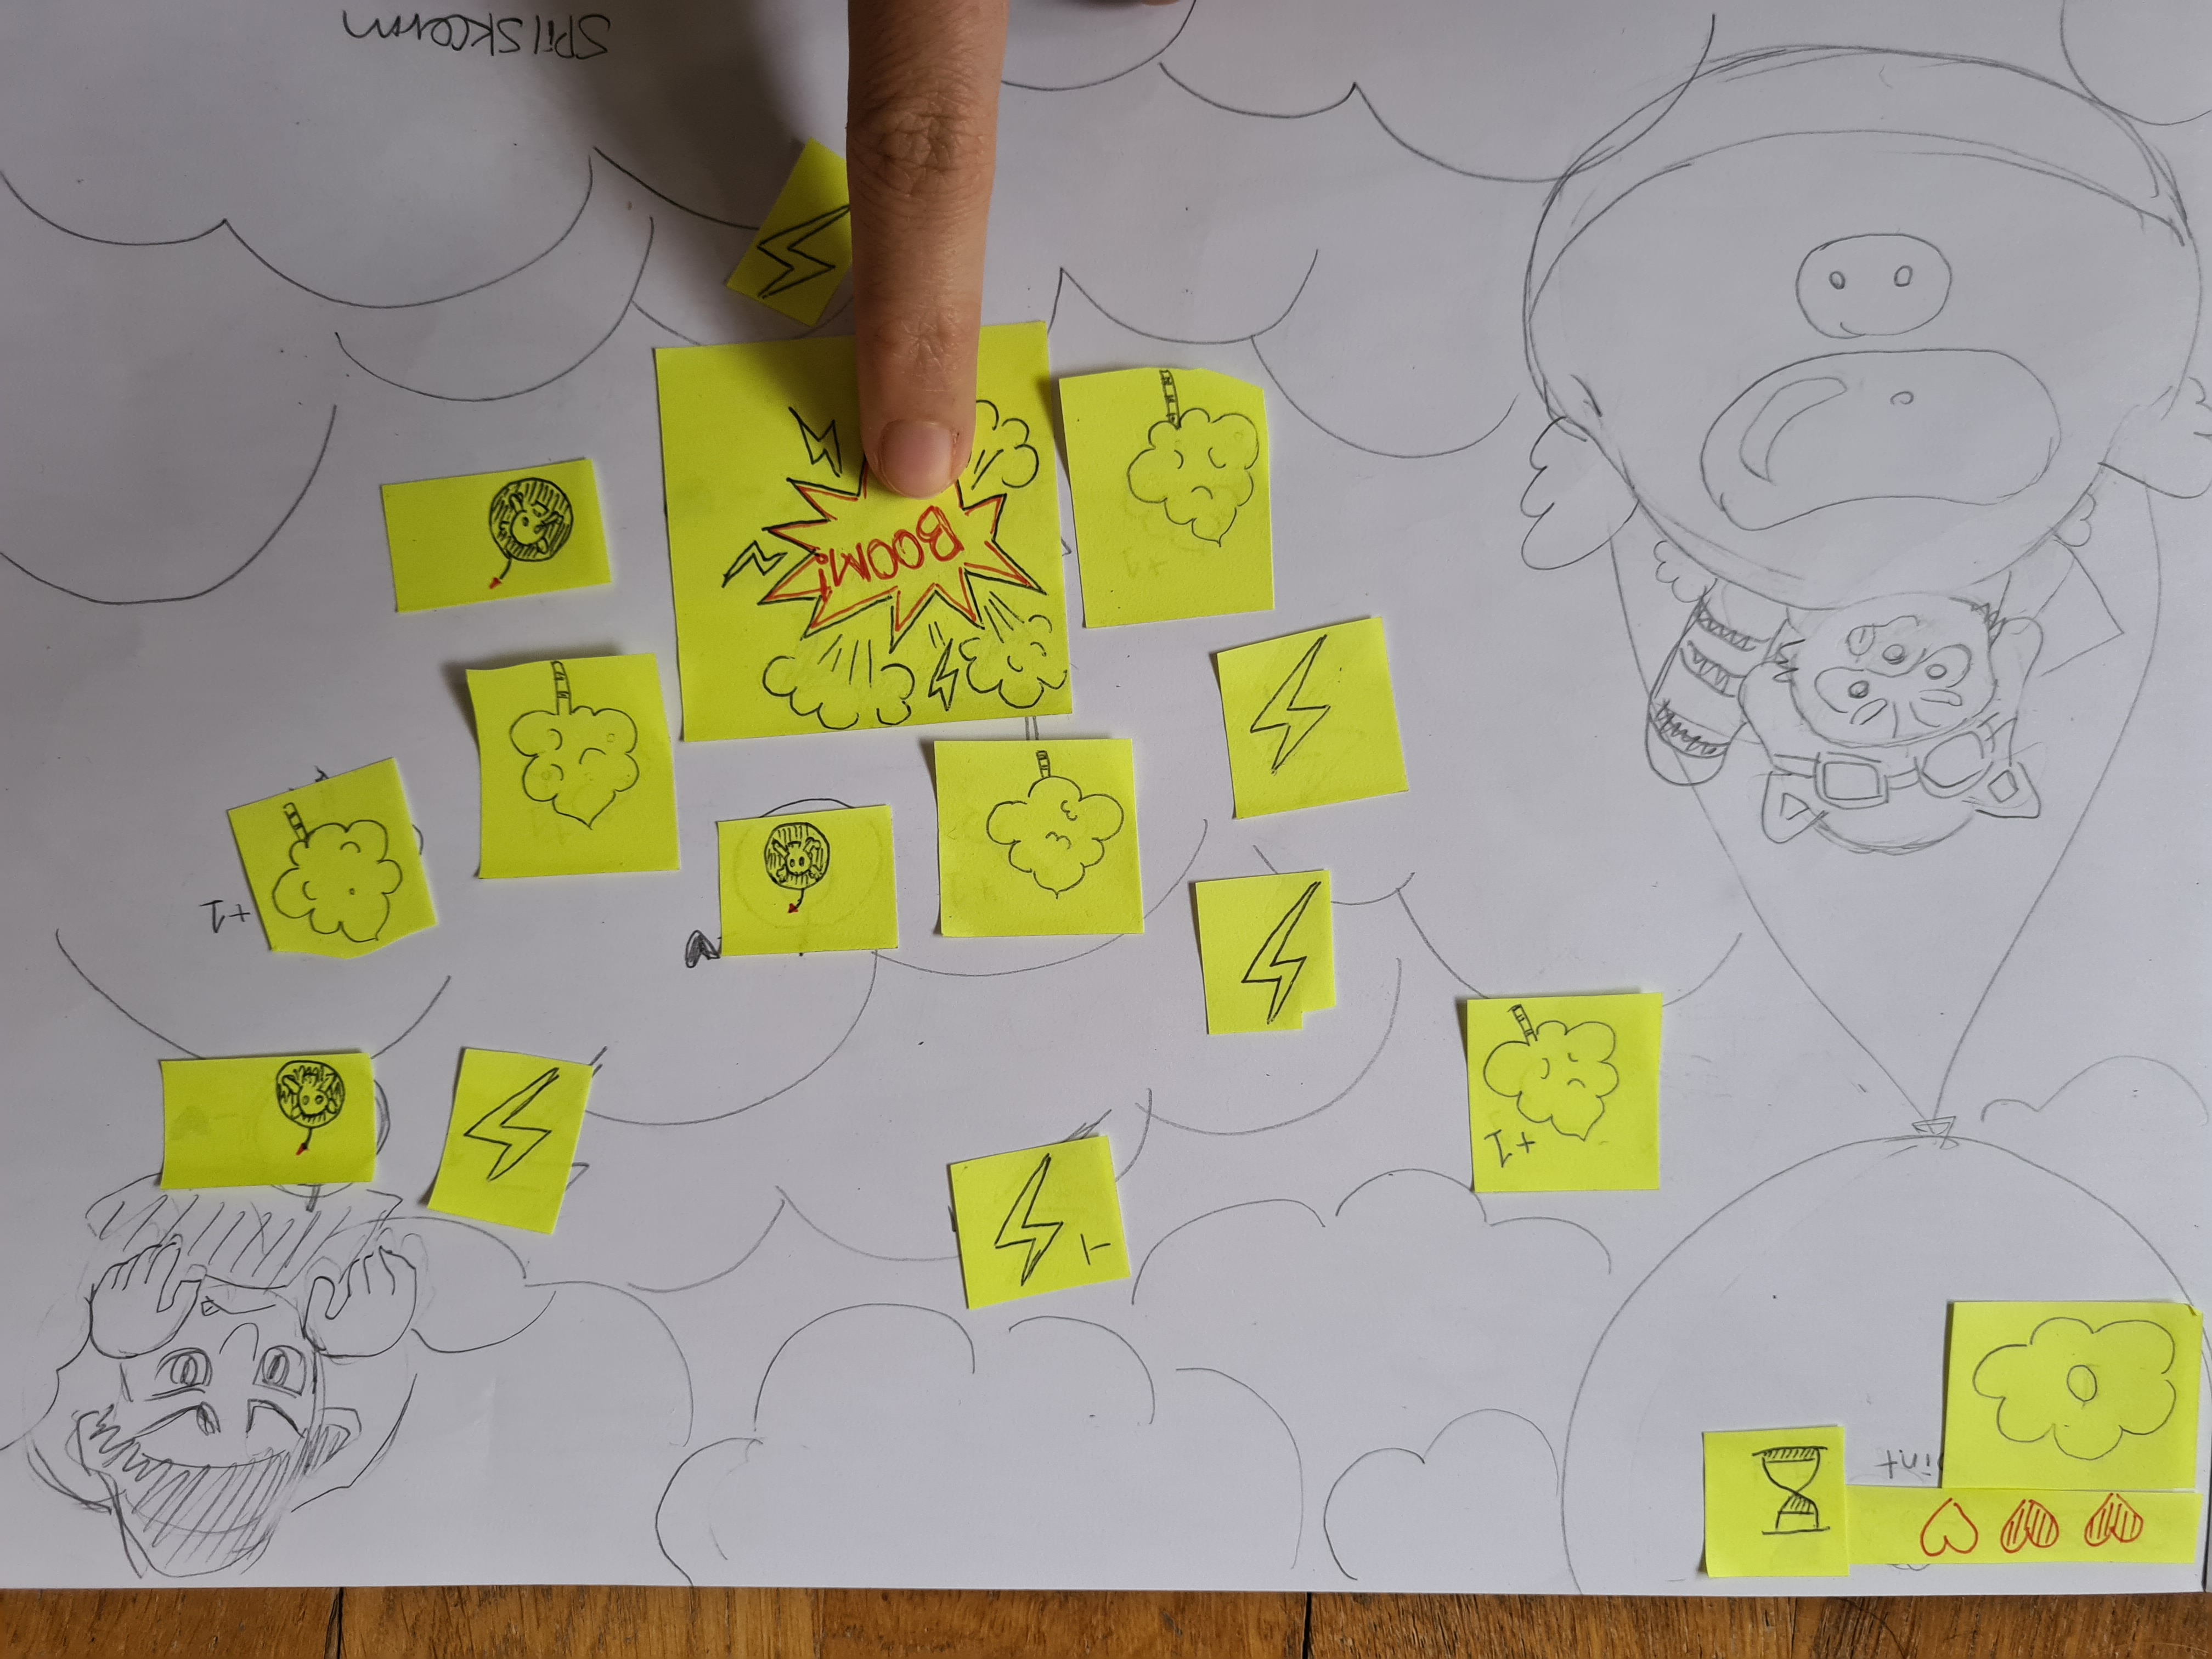 int
-1
+1
+1
+1
BOOM!
SPilSkærm